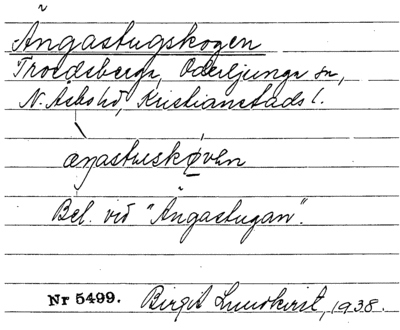 Ängastugskogen
Troedsberga, Oderljunga sn,
N. Åsbo hd, Kristianstads l.
æŋastuskǿvən
Bel. vid "Ängastugan".
Nr 5499. Birgit Lundkvist, 1938.